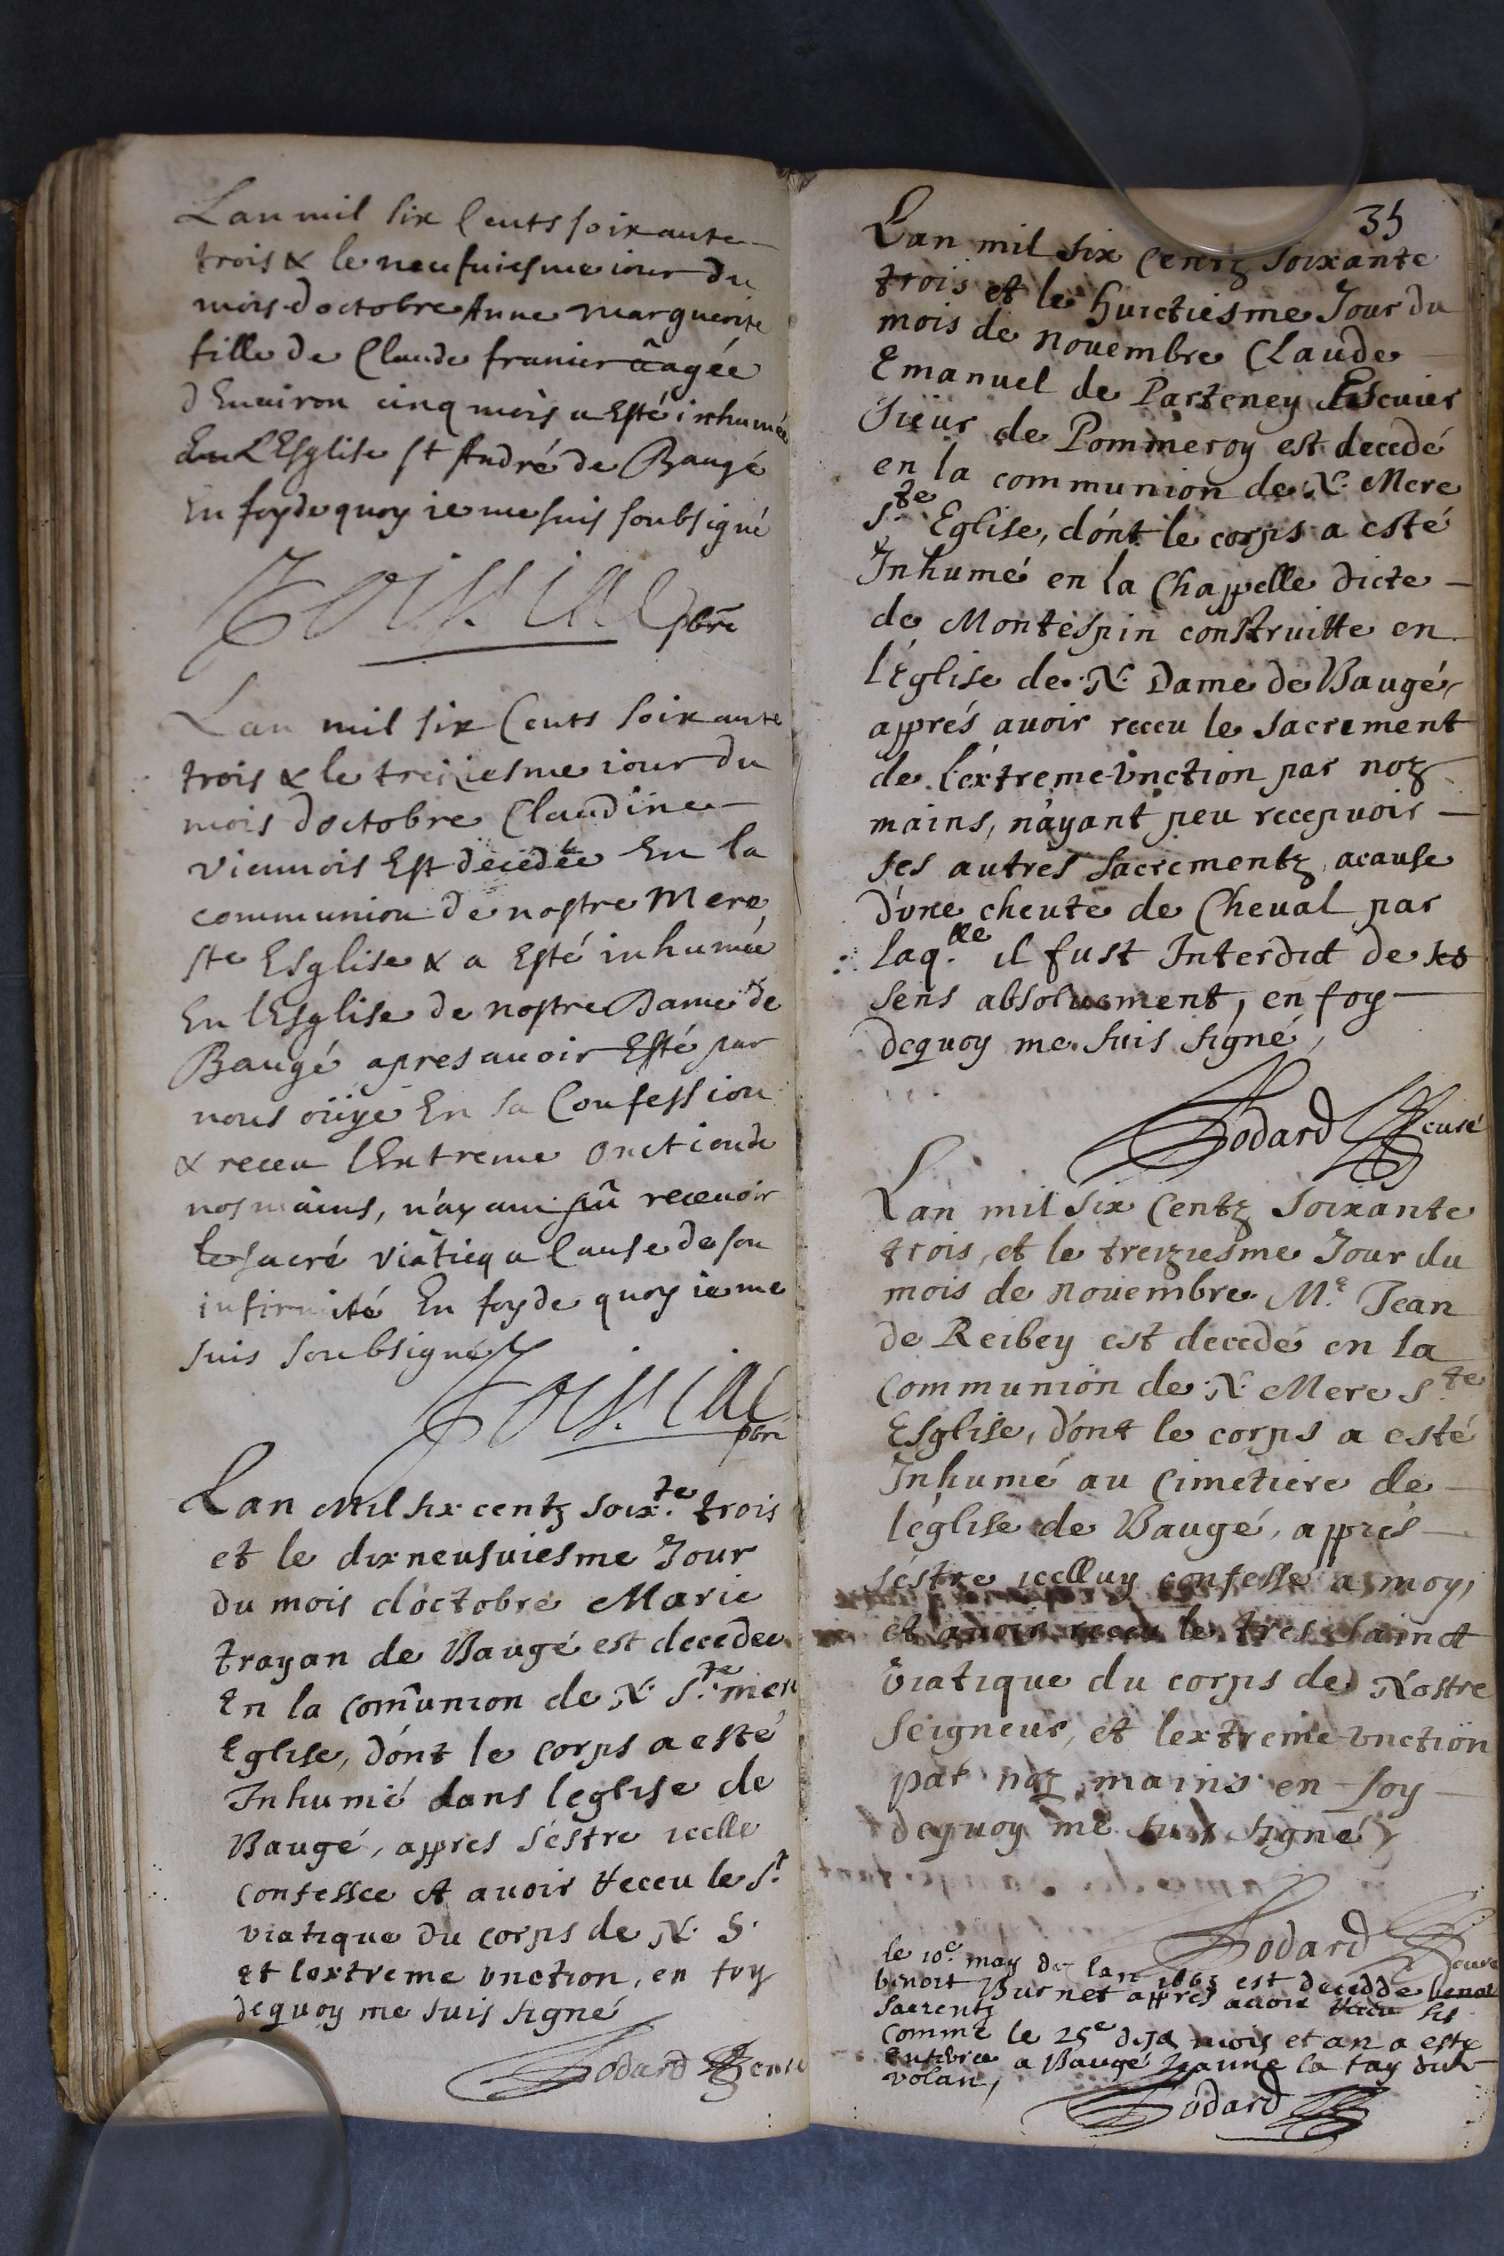 Lan mil six Cents soixante
trois & le neufuiesme iour du
mois doctobre Anne marguerite
fille de Claude franier aagée
dEnuiron cinq mois a Esté inhumée
En LEsglise st André de Baugé
En foy de quoy ie me suis soubsigné
pbre
Lan mil six Cents soixante
trois & le treiziesme iour du
mois doctobre Claudine
viennois Est decedée En la
communion de nostre Mere
ste Esglise & a Esté inhumée
En lEsglise de nostre Dame de
Baugé apres auoir Esté par
nous oüye En sa Confession
& receu lExtreme onction de
nos mains, nayant pû receuoir
le sacré viatiq a Cause de son
infirmité En foy de quoy ie me
suis soubsigné
pbre
Lan Mil six centz soix.te trois
et le dixneufuiesme Jour
du mois doctobre Marie
trayan de Baugé est decedee
En la com̃union de N. S.te mere
Eglise, dónt le corps a esté
Inhumé dans leglise de
Baugé, appres séstre icelle
confessee et auoir receu le S.t
viatique du corps de N. S.
et lextreme vnction, en foy
dequoy me suis signé
Godard Curé
35
Lan mil six Centz soixante
trois et le huictiesme Jour du
mois de nouembre Claude
Emanuel de Parteney Escuier
Sieur de Pommeroy est decedé
en la communion de N. Mere
S.te Eglise, dónt le corps a esté
Inhumé en la Chappelle dicte
de Montespin construitte en
lÉglise de N. Dame de Baugé,
apprés auoir receu le sacrement
de léxtreme-vnction par noz
mains, náyant peu recepuoir
les autres sacrementz acause
dúne cheute de Cheval par
laq.lle il fust Interdict de ses
sens absoluement, en foy
dequoy me suis signé,
Godard Curé
Lan mil six Centz soixante
trois, et le treiziesme Jour du
mois de nouembre M.e Jean
de Reibey est decedé en la
Communion de N. Mere S.te
Esglise, dónt le corps a esté
Inhumé au Cimetiere de
léglise de Baugé, apprés
séstre icelluy confessé a moy,
et auoir receu le tres sainct
viatique du corps de Nostre
Seigneur, et lextreme-vnction
par noz mains en foy
dequoy me suis signé,
Godard Curé
le 10e may de lan 1663 est decedde
benoit Burnet appres auoir receu ses
sacrentz
comme le 25e mois et an a este
Enterree a Baugé la tay
volan,
Godard